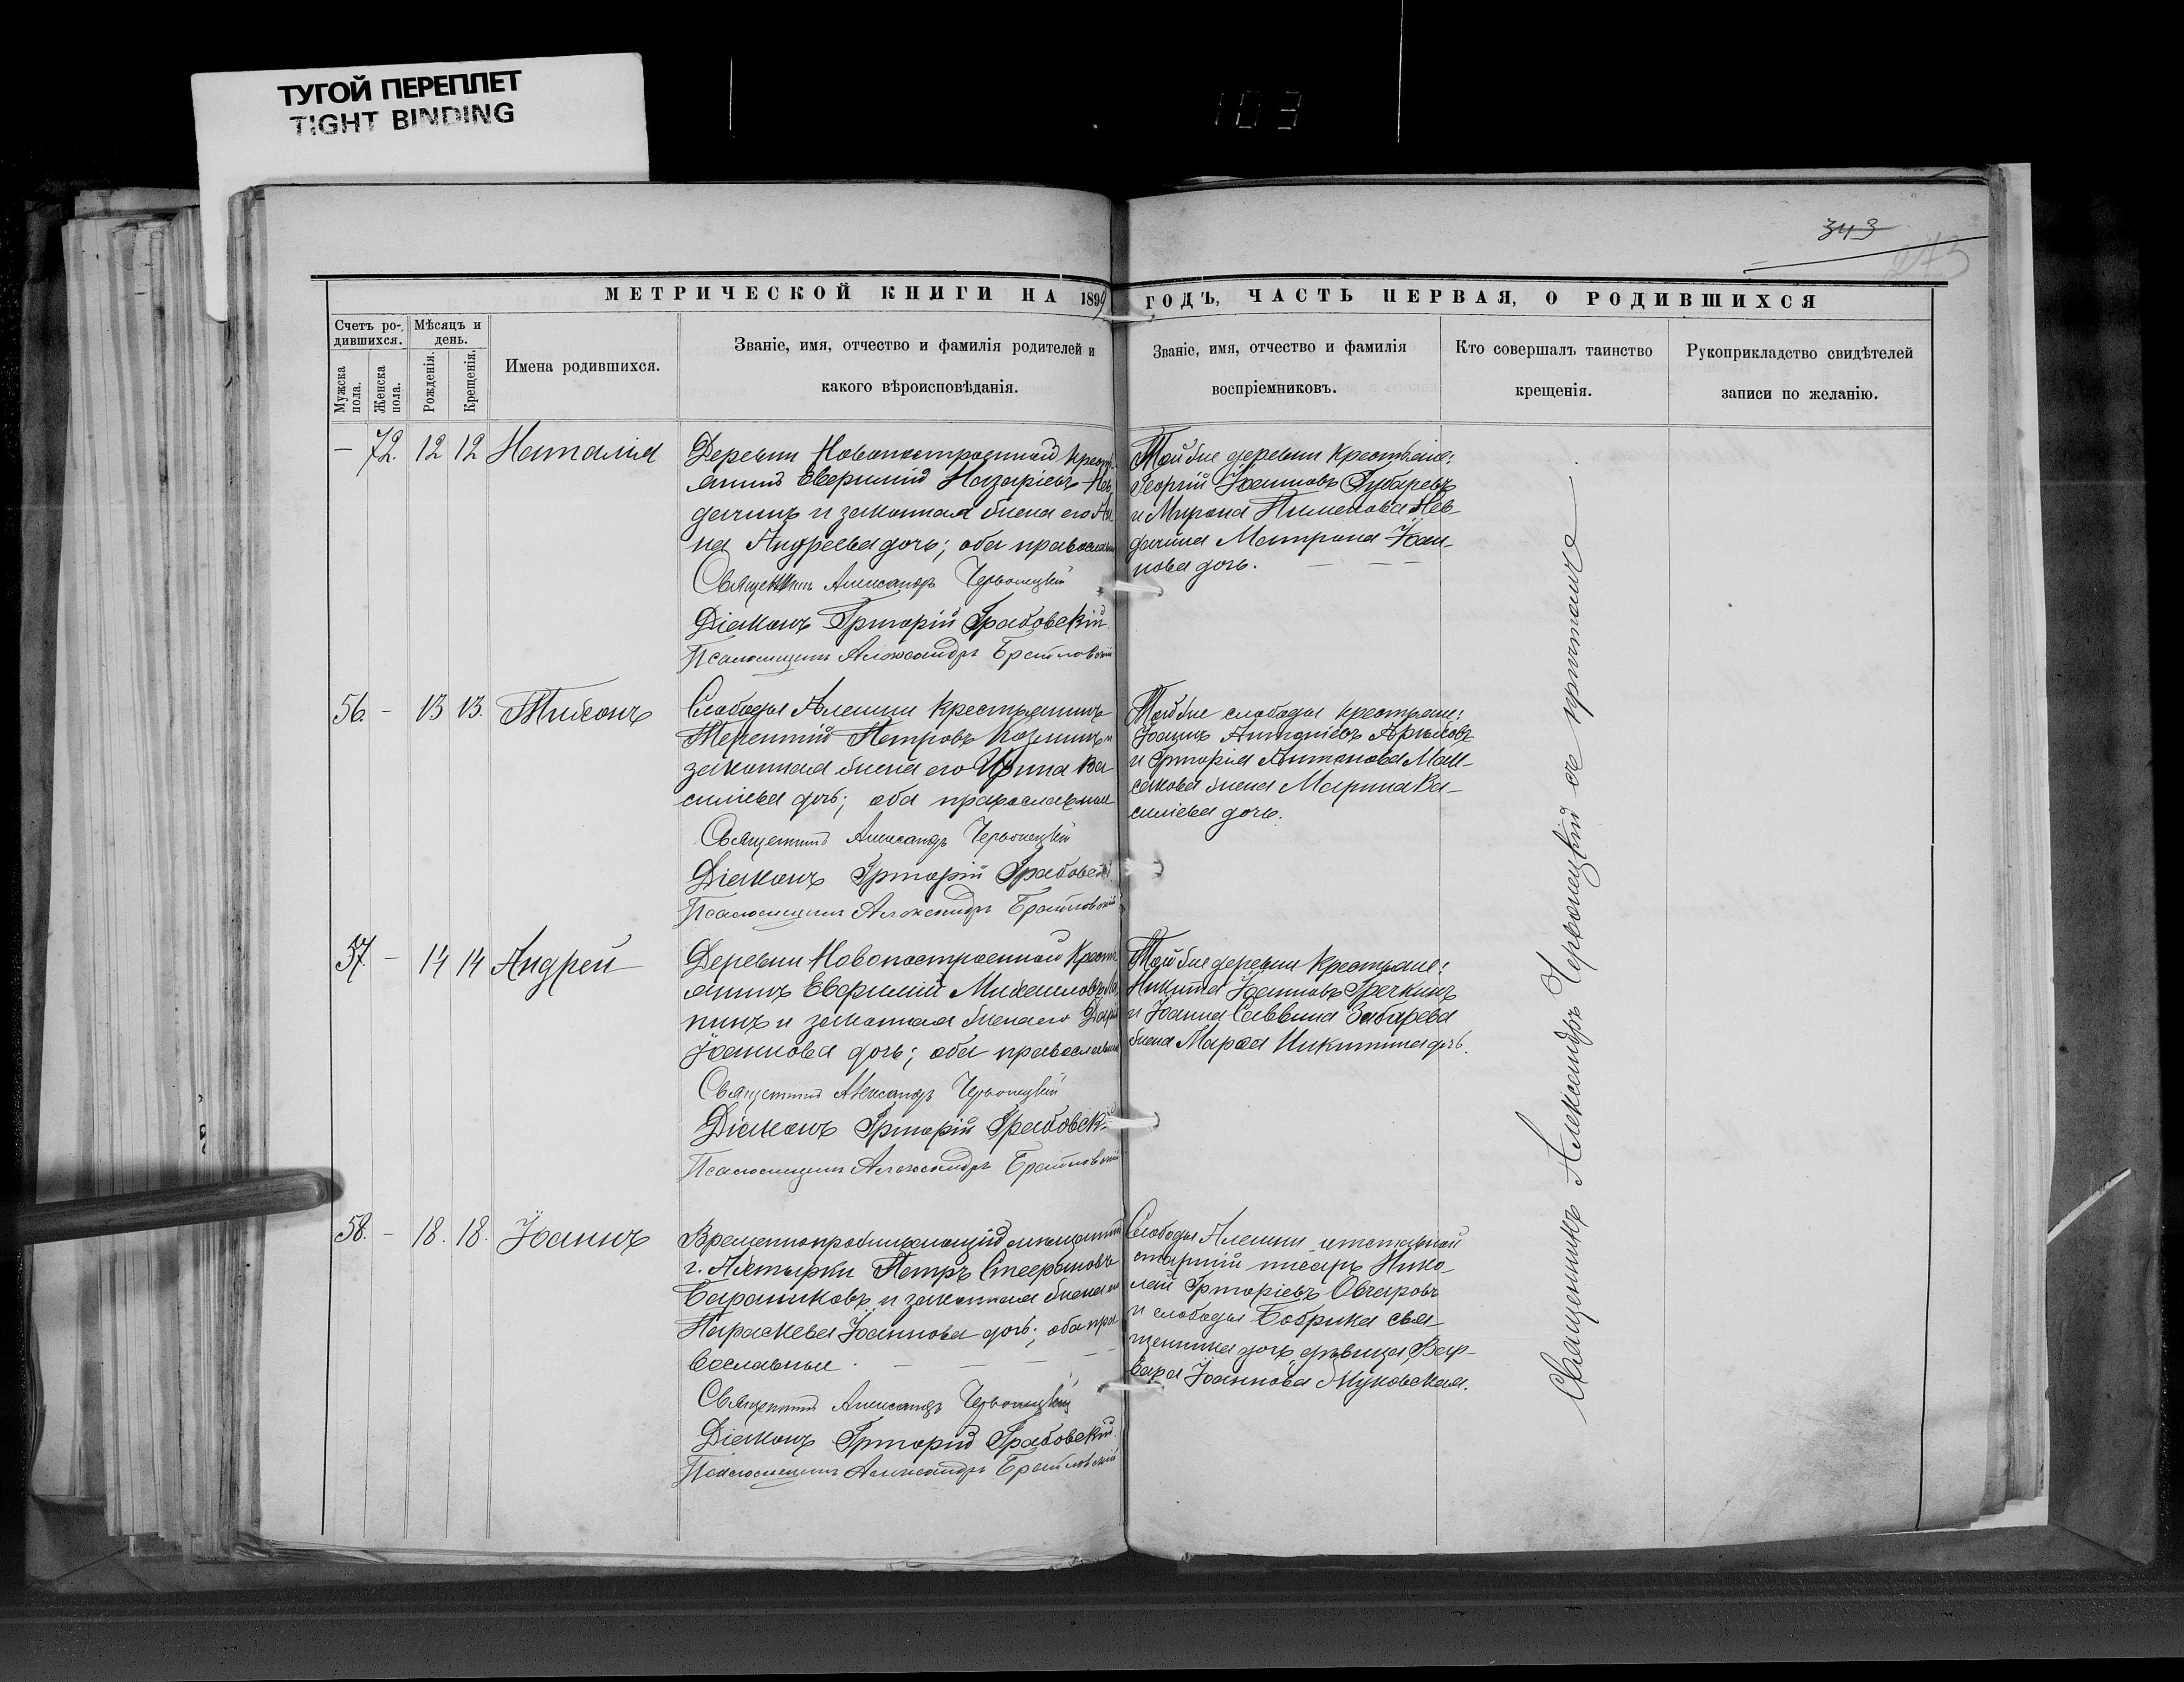 ТУГОЙ ПЕРЕПЛЕТ
TIGHT BINDING
103
343
273
МЕТРИЧЕСКОЙ КНИГИ НА 189 ГОДЪ, ЧАСТЬ ПЕРВАЯ, О РОДИВШИХСЯ
Счетъ ро-
дившихся.
Мѣсяцъ и
день.
Мужска
пола.
Женска
пола.
Рожденія.
Крещенія.
Имена родившихся.
Званіе, имя, отчество и фамилія родителей и
какого вѣроисповѣданія.
Званіе, имя, отчество и фамилія
воспріемниковъ.
Кто совершалъ таинство
крещенія.
Рукоприкладство свидѣтелей
записи по желанію.
— 72. 12 12 Наталія
Деревни Новопостроенной крест-
янинъ Евфимій Назаріевъ Нев-
дачинъ и законная жена его Ан-
на Андреева дочь; оба православн
Священникъ Александръ Червонецкій
Діаконъ Григорій Грабовскій
Псаломщикъ Александръ
Той же деревни крестьяне:
Георгій Іоанновъ Губаревъ
и Мирона Пименова Нев-
дачина Матрона Іоан-
нова дочь.
56. — 13 13. Тихонъ
Слободы Алешни крестьянинъ
Терентій Петровъ Козминъ и
законная жена его Ирина Ва
силіева дочь; оба православные
Священникъ Александръ Червонецкій
Діаконъ Григорій Грабовскій
Псаломщикъ Александръ
Той же слободы крестьяне:
Іоаннъ Антоніевъ
и Григорія Антонова Мак-
сакова жена Марина Ва-
силіева дочь.
57. — 14 14 Андрей
Деревни Новопостроенной крест
янинъ Евфимій Михаиловъ
нинъ и законная жена его Дарія
Іоаннова дочь; оба православные
Священникъ Александръ Червонецкій
Діаконъ Григорій Грабовск
Псаломщикъ Александръ
Той же деревни крестьяне:
Никита Іоанновъ Гречкинъ
и Іоанна Саввина Забарева
жена Марѳа Никитина дочь.
58. — 18. 18. Іоаннъ
Временнопроживающій мѣщанинъ
г. Ахтырки Петръ Стефановъ
Баранниковъ и законная жена его
Параскева Іоаннова дочь; оба пра
вославные.
Священникъ Александръ Червонецкій
Діаконъ Григорій Грабовскій.
Псаломщикъ Александръ
Слободы Алешни отставной
старшій писарь Нико-
лай Григоріевъ Овчаровъ
и слободы Бобрика свя-
щенника дочь дѣвица Вар-
вара Іоаннова Жуковская.
Священникъ Александръ Червонецкій съ причтомъ